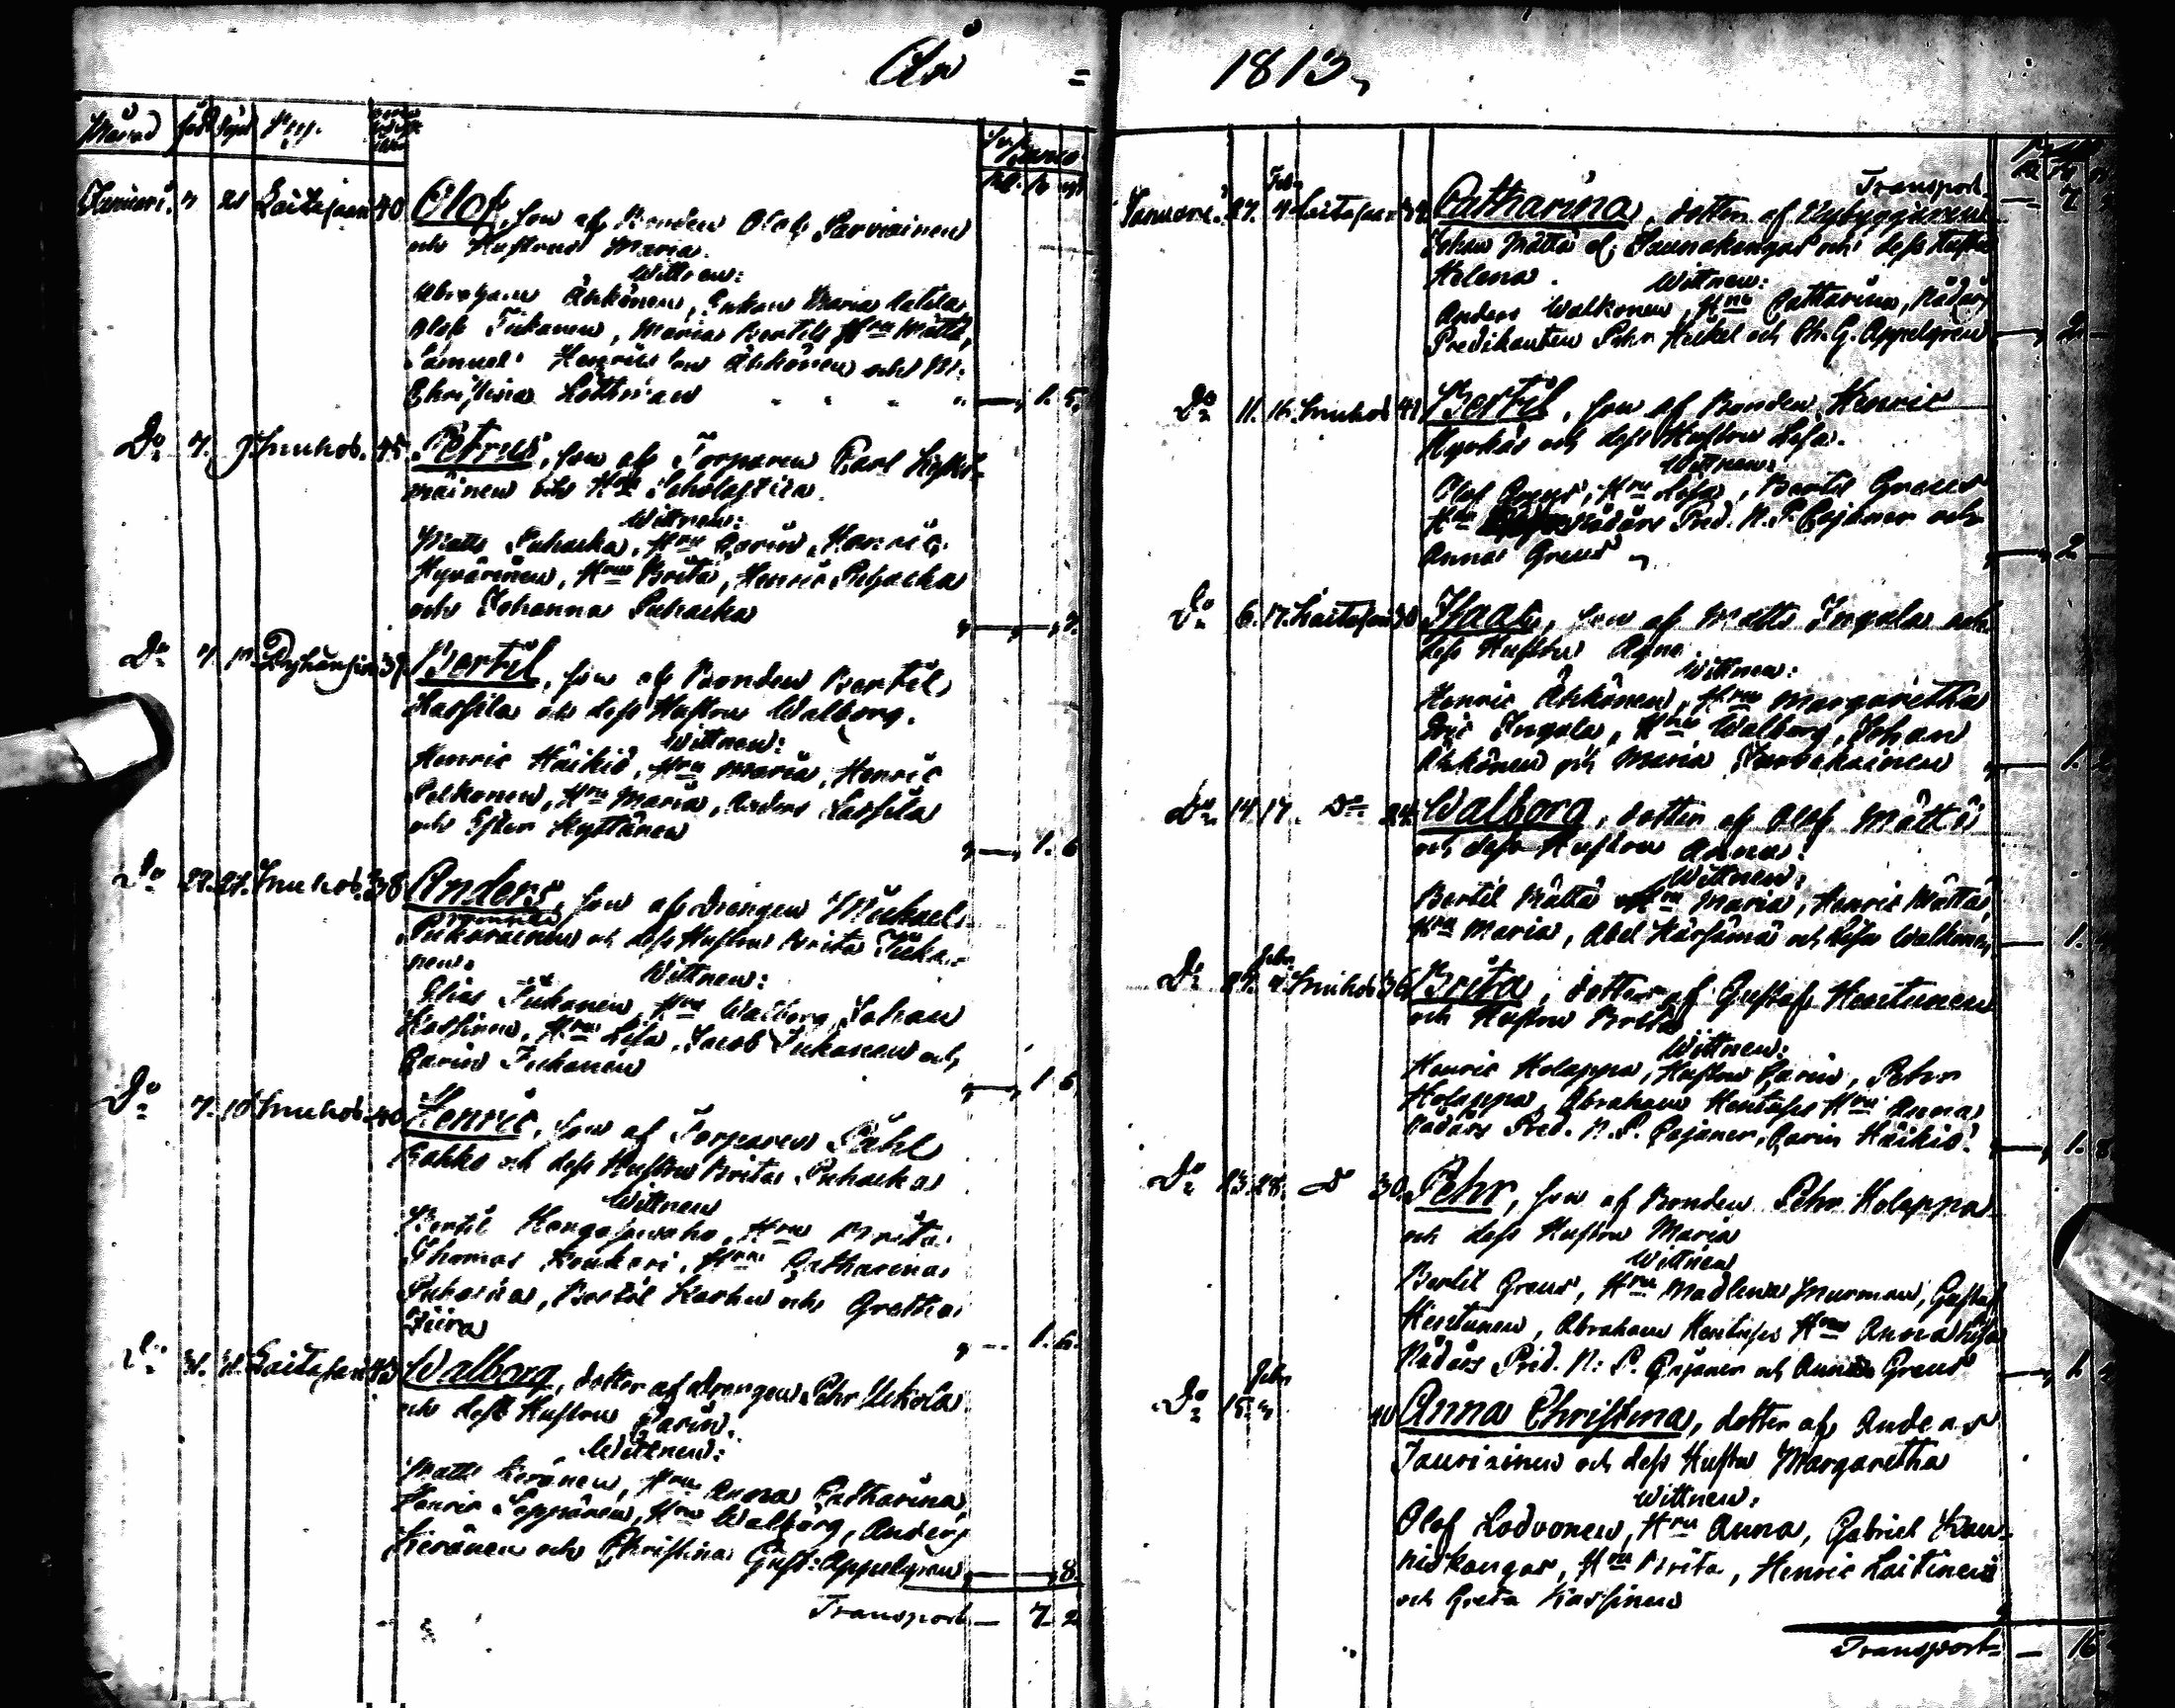 År = 1813,
Månad föd
Januari. 7 21 Laitasaari 40 Olof, son af Bonden Olof Sarviainen
och Hustrun Maria.
Wittnen:
Abraham Ähkönen, Enkan Maria
Olof Tiikanen, Maria Bertils Hru Mättä,
Samuel Henrics son Ähkönen och
Christina Lithman 1. 5.
Do 7. 9 Smuhos. 45 Petrus, son af Torparen Carl
mäinen och Hru Scholastica.
Wittnen:
Matts Puhacka, Hru Carin, Henric
Hyvärinen, Hru Brita, Henric Puhacka
och Johanna Puhacka 7.
Do 7 39 Bertil, son af Bonden Bertil
Kassila och dess Hustru Walborg.
Wittnen:
Henric Häikiö, Hru Maria, Henric
Pelkonen, Hru Maria, Anders Kassila
och Ester Kyttänen 1. 6
Do 22. 24. Smuhos. 38 Anders, son af drengen Michael
och dess Hustru Brita Tiika-
nen. Wittnen:
Elias Tiikanen, Hru Walborg, Johan
Kassinen, Hru Lisa, Jacob Tiikanen och
Carin Tiikanen 1. 6.
Do 7. 10 Smuhos. 40 Henric, son af Torparen Påhl
Kokko och dess Hustru Brita Puhacka
Wittnen
Bertil Kangas, Hru Brita
Thomas Keukeri, Hru Catharina
Puhacka, Bertil Karhu och Gretha
Piira 1. 6.
Laitasaari 43 Walborg, dotter af drengen Pehr Ukkola
och dess Hustru Carin.
Wittnen:
Matts Keränen, Hru Anna Catharina,
Henric Seppänen, Hru Walborg, Anders
Keränen och Christina Gust: Appelgren 8.
Transport 7 2
Transport 7
Januari. 27. Feb. 4 Laitasaari Catharina, dotter af Nybyggaren
Johan Mättä af Saunakangas och dess Hustru
Helena. Wittnen:
Anders Walkonen, Hru Catharina, Nådårs
Predikanten Pehr Heikel och Chr. G. Appelgren 2
Do 11. 16. Smuhos 41 Bertil, son af Bonden Henric
Kyrkäs och dess Hustru Lisa.
Wittnen:
Olof Greus, Hru Lisa, Bertil Greus
Hru Nådårs Pred. N. P. Cajaner och
Anna Greus 2
Do 6. 17. Laitasaari 30 Isaac, son af Matts Ingala och
dess Hustru Agne
Wittnen:
Henric Ähkönen, Hru Margaretha
Eric Ingala, Hru Walborg, Johan
Ähkönen och Maria Turvakainen 1.
Do 14 17. Do 24 Walborg, dotter af Olof Mättä
och dess Hustru Anna:
Wittnen:
Bertil Mättä Hru Maria, Henric Mättä,
Hru Maria, Abel Kärsämä och Lisa Walkonen 1.
Do 27. Febr. 4 Smuhos 36 Brita, dotter af Gustaf Hentunen
och Hustru Brita
Wittnen:
Henric Holappa, Hustru Carin, Pehr
Holappa, Abraham Hru Anna
Nådårs Pred. N. P. Cajaner, Carin Häikiö. 1. 8
Do 23 28 D 30 Pehr, son af Bonden Pehr Holappa
och dess Hustru Maria
Wittnen
Bertil Greus, Hru Madlena Murman, Gustaf
Hentunen, Abraham Hru Anna Lisa
Nådårs Pred. N: P. Cajaner och Anna Greus 1
Do 15. Febr. 3 40 Anna Christina, dotter af Anders
Tauriainen och dess Hustru Margaretha
Wittnen:
Olof Lodvonen, Hru Anna, Gabriel Kau-
niskangas, Hru Brita, Henric Laitinen
och Greta Karsinen
Transport 16